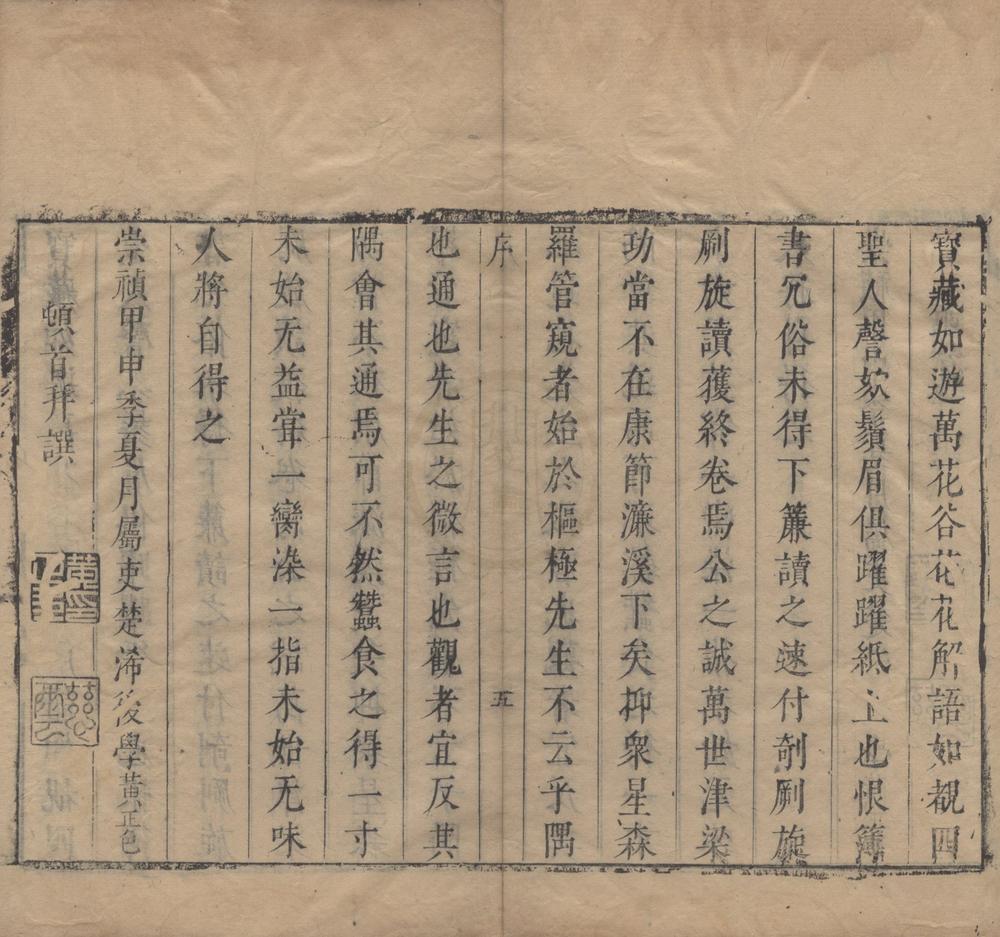 寶藏如遊萬花谷花花解語如覩四
聖人謦欬鬚眉俱躍躍紙上也恨簿
書冗俗未得下簾讀之速付剞劂旋
劂旋讀蒦終卷焉公之誠萬世津梁
功當不在康節濂溪下矣抑衆星森
羅管窺者始於樞極先生不云乎隅
序 五
也通也先生之微言也觀者宜反其
隅會其通焉可不然蠶食之得一寸
未始无益甞一臠染一指未始无味
人將自得之
崇禎甲申季夏月屬吏楚浠後學黃正色
頓首拜譔